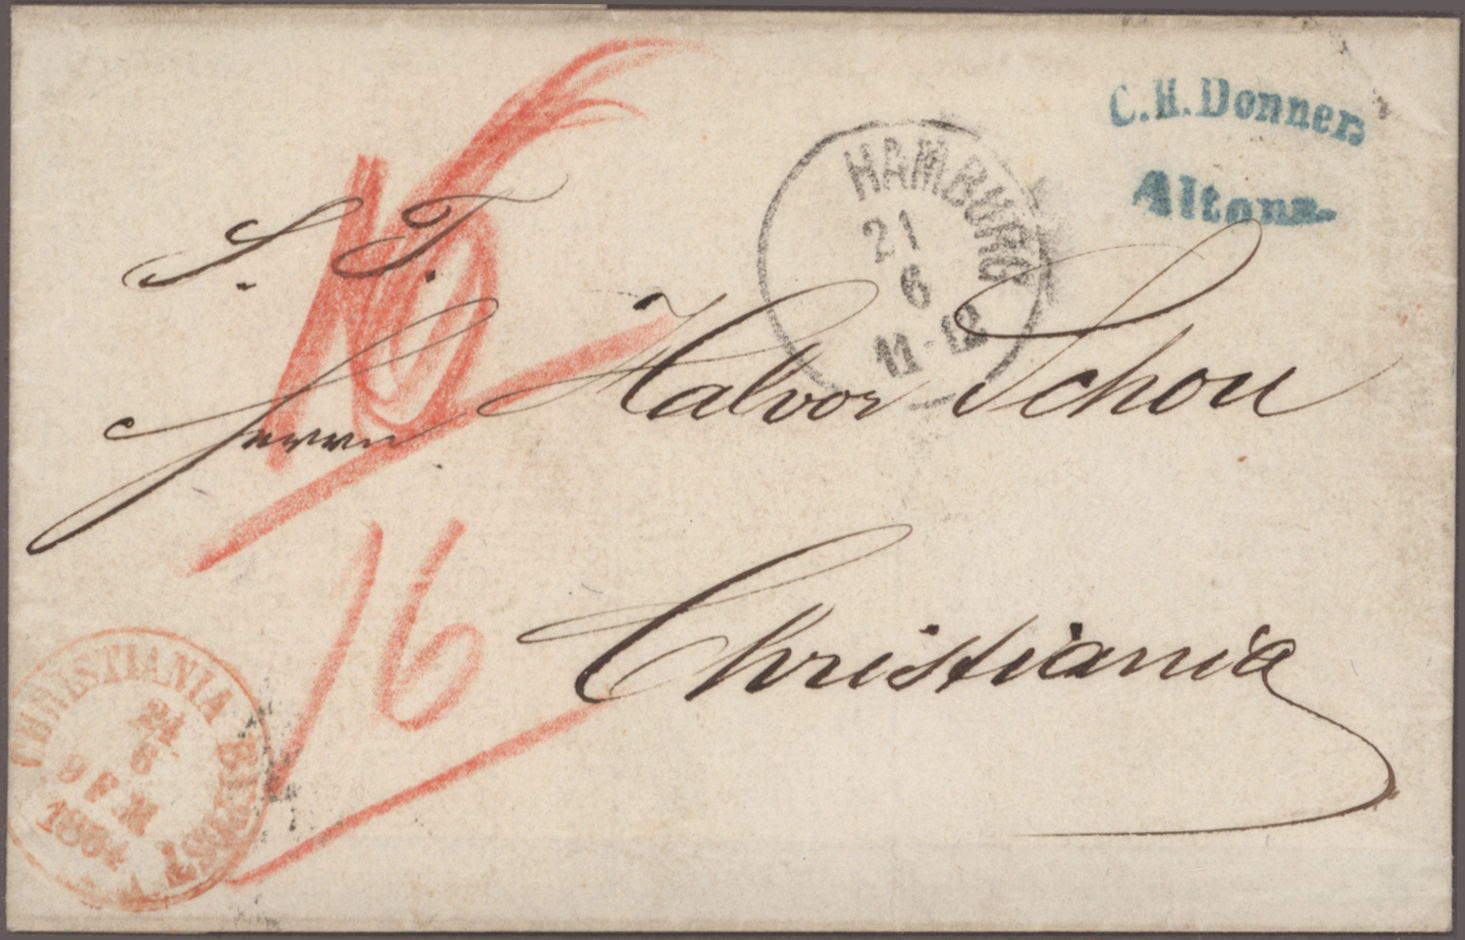 C. H. Donner
Altona.
HAMBURG
21
6
11-12
16
S. T.
Herrn Halvor Schou
16
Christiania
CHRISTIANIA
24
6
9 F M
1864